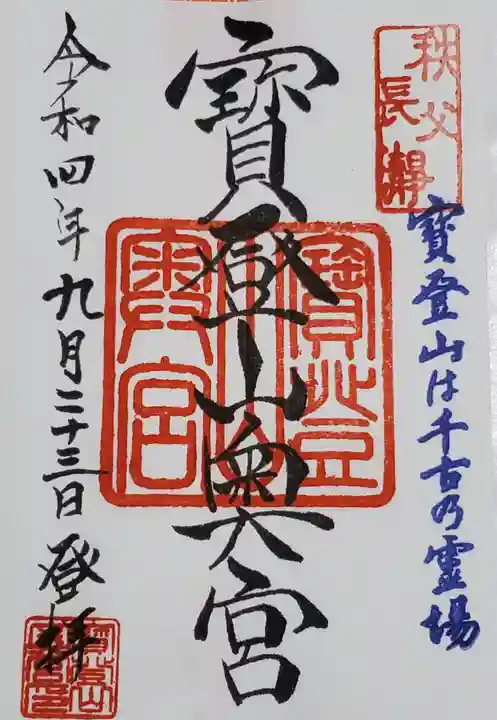 秩父
長瀞
寶登山は千古乃霊場
寶登山奥宮
寶登山
奥宮
令和四年九月二十三日登拝